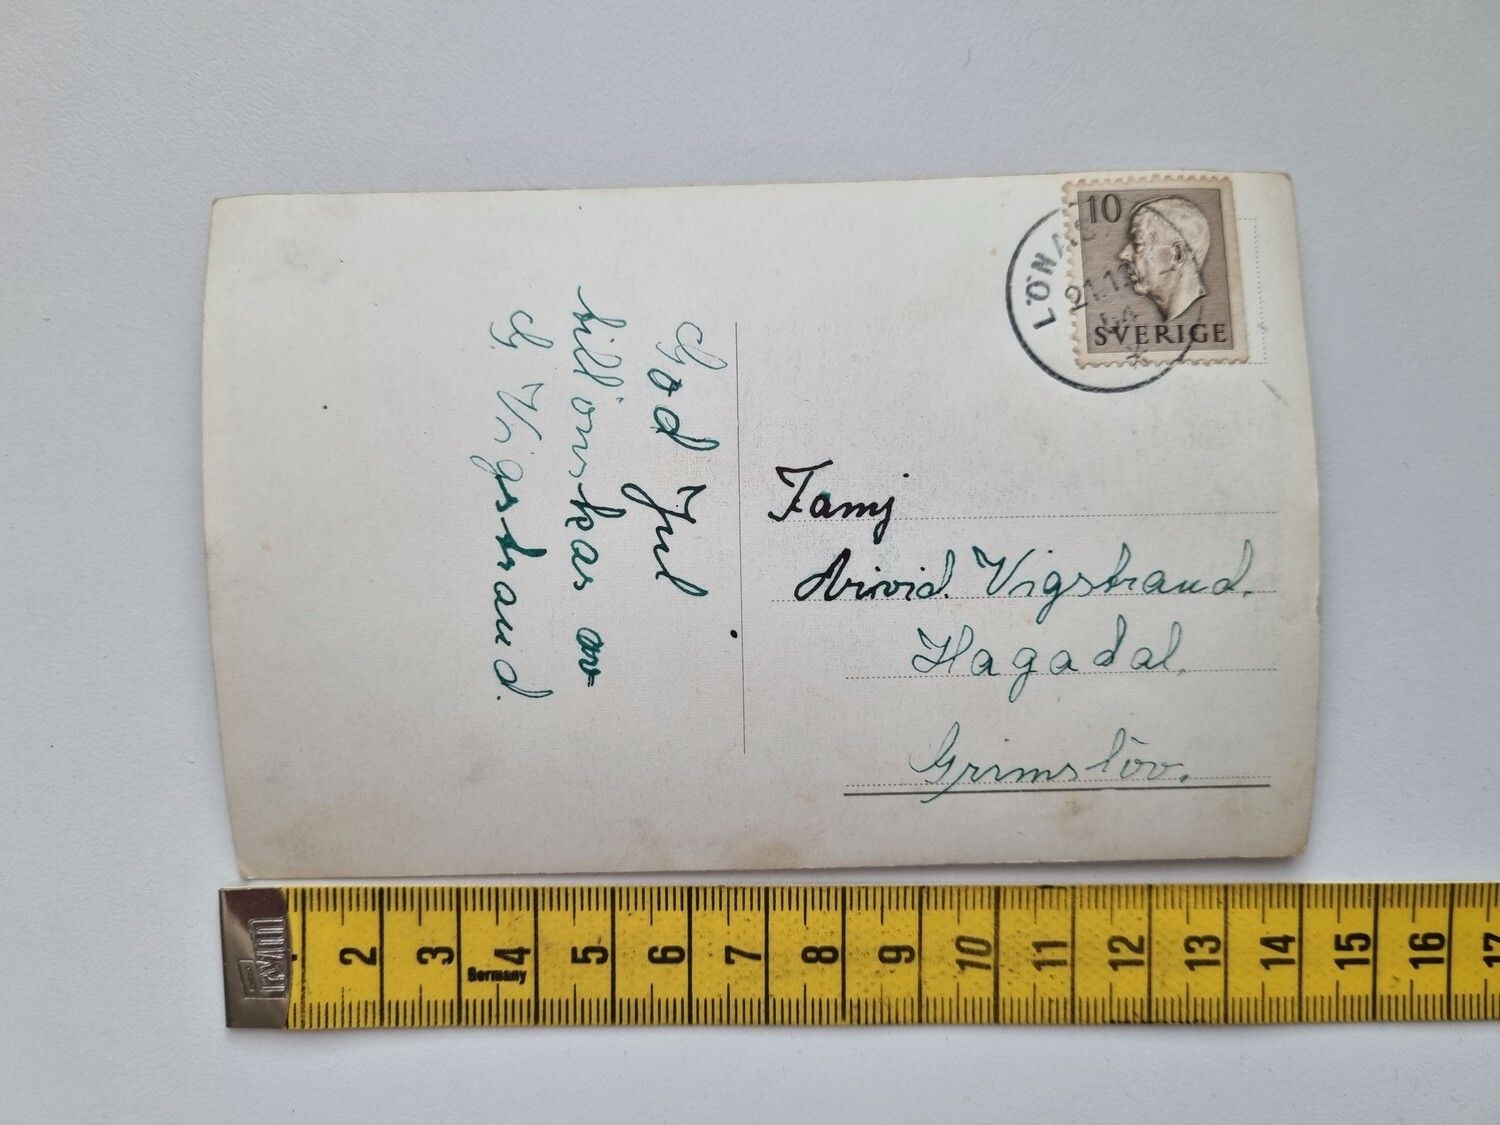 God Jul
tillönskas av
G. Vigstrand.
Famj
Arvid. Vigstrand.
Hagadal.
Grimslöv.
10
SVERIGE
21.12
2 3 4 5 6 7 8 9 10 11 12 13 14 15 16 17
Germany